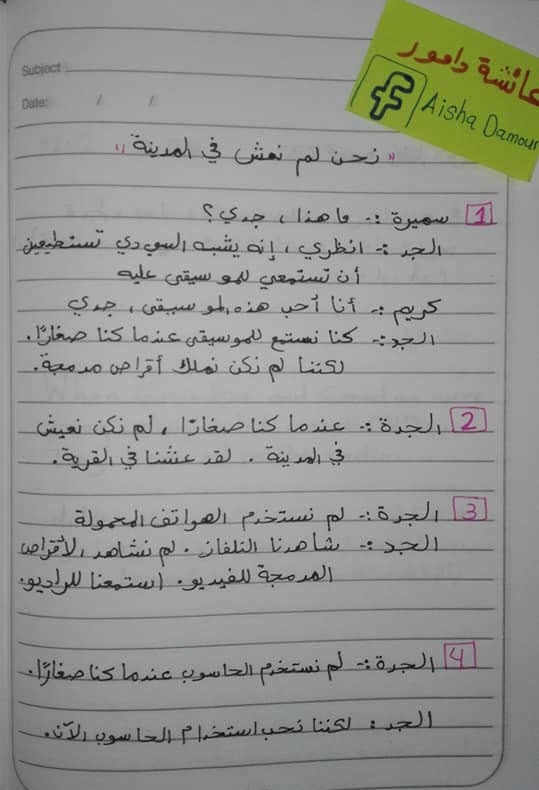 عائشة دامور
Aisha Damour
Subject
Date: / /
" نحن لم نعش في المدينة "
1 سميرة :- ما هذا ، جدي ؟
الجد :- انظري ، إنه يشبه السي دي تستطيعين
أن تستمعي للموسيقى عليه
كريم :- أنا أحب هذه الموسيقى ، جدي
الجد :- كنا نستمع للموسيقى عندما كنا صغارًا.
لكننا لم نكن نملك أقراص مدمجة.
2 الجدة :- عندما كنا صغارًا ، لم نكن نعيش
في المدينة . لقد عشنا في القرية .
3 الجدة :- لم نستخدم الهواتف المحمولة
الجد :- شاهدنا التلفاز . لم نشاهد الأقراص
المدمجة للفيديو . استمعنا للراديو.
4 الجدة :- لم نستخدم الحاسوب عندما كنا صغارًا.
الجد : لكننا نحب استخدام الحاسوب الآن.